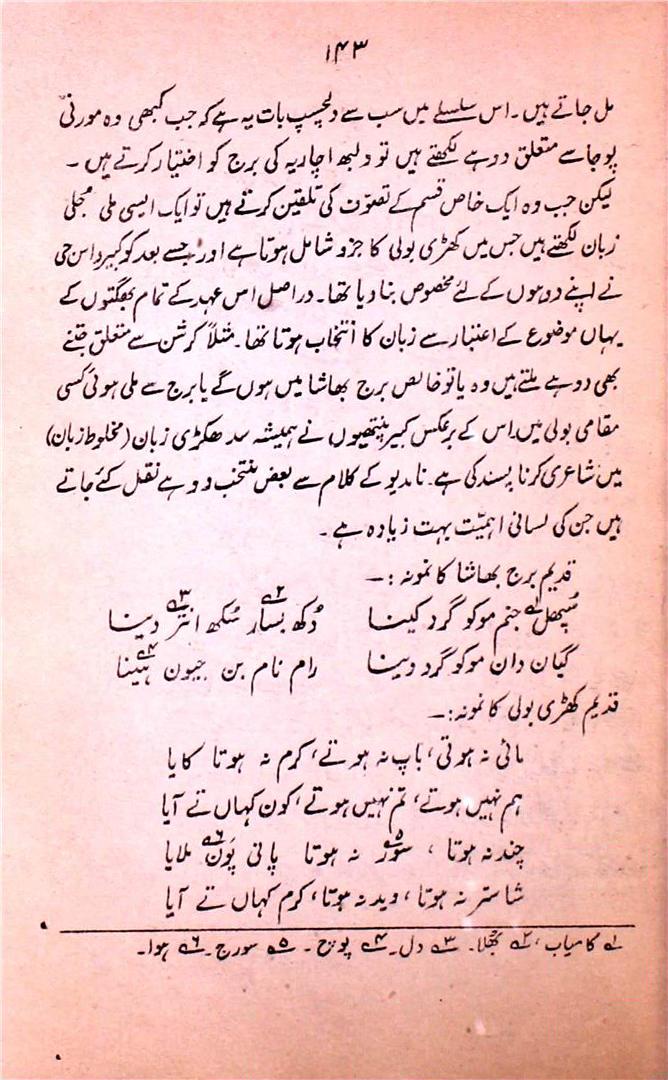 ۱۴۳
مل جاتے ہیں۔ اس سلسلے میں سب سے دلچسپ بات یہ ہے کہ جب کبھی وہ مورتی
پوجا سے متعلق دوہے لکھتے ہیں تو ولبھ اچاریہ کی برج کو اختیار کرتے ہیں۔
لیکن جب وہ ایک خاص قسم کے تصوّف کی تلقین کرتے ہیں تو ایک ایسی ملی مجلی
زبان لکھتے ہیں جس میں کھڑی بولی کا جزو شامل ہوتا ہے اور جسے بعد کو کبیر داس جی
نے اپنے دوہوں کے لئے مخصوص بنا دیا تھا۔ دراصل اس عہد کے تمام بھگتوں کے
یہاں موضوع کے اعتبار سے زبان کا انتخاب ہوتا تھا۔ مثلاً کرشن سے متعلق جتنے
بھی دوہے ملتے ہیں وہ یا تو خالص برج بھاشا میں ہوں گے یا برج سے ملی ہوئی کسی
مقامی بولی میں۔ اس کے برعکس کبیر پنتھیوں نے ہمیشہ سدھکڑی زبان (مخلوط زبان)
میں شاعری کرنا پسند کی ہے۔ نامدیو کے کلام سے بعض منتخب دوہے نقل کئے جاتے
ہیں جن کی لسانی اہمیّت بہت زیادہ ہے۔
قدیم برج بھاشا کا نمونہ :۔
سُپھل۱ جنم موکو گرد کینا دُکھ بسار۲ سُکھ انتر۳ دینا
گیان دان موکو گرد دینا رام نام بن جیون ہینا۴
قدیم کھڑی بولی کا نمونہ :۔
مائی نہ ہوتی، باپ نہ ہوتے، کرم نہ ہوتا کایا
ہم نہیں ہوتے، تم نہیں ہوتے، کون کہاں تے آیا
چند نہ ہوتا ، سور۵ نہ ہوتا پانی پَون۶ ملایا
شاستر نہ ہوتا ، وید نہ ہوتا، کرم کہاں تے آیا
۱ کامیاب، ۲ بھُلا۔ ۳ دل۔ ۴ پوچ۔ ۵ سورج۔ ۶ ہوا۔